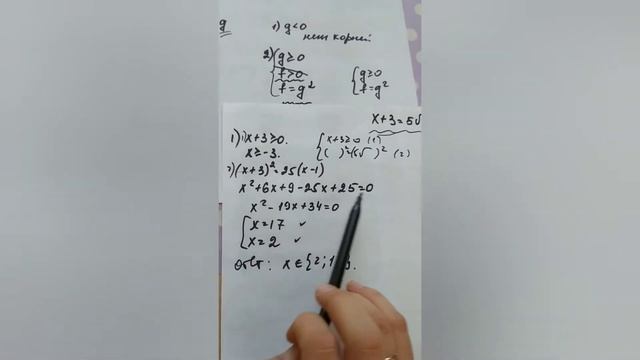 g
1) g<0
нет корней
2) { g≥0
f≥0
f=g²
{ g≥0
f=g²
x+3=5√
1) 1) x+3≥0.
x≥-3.
{ x+3≥0 (1)
( )²=(5√ )² (2)
2) (x+3)²=25(x-1)
x²+6x+9-25x+25=0
x²-19x+34=0
[ x=17 ✓
x=2 ✓
Ответ: x∈{2;